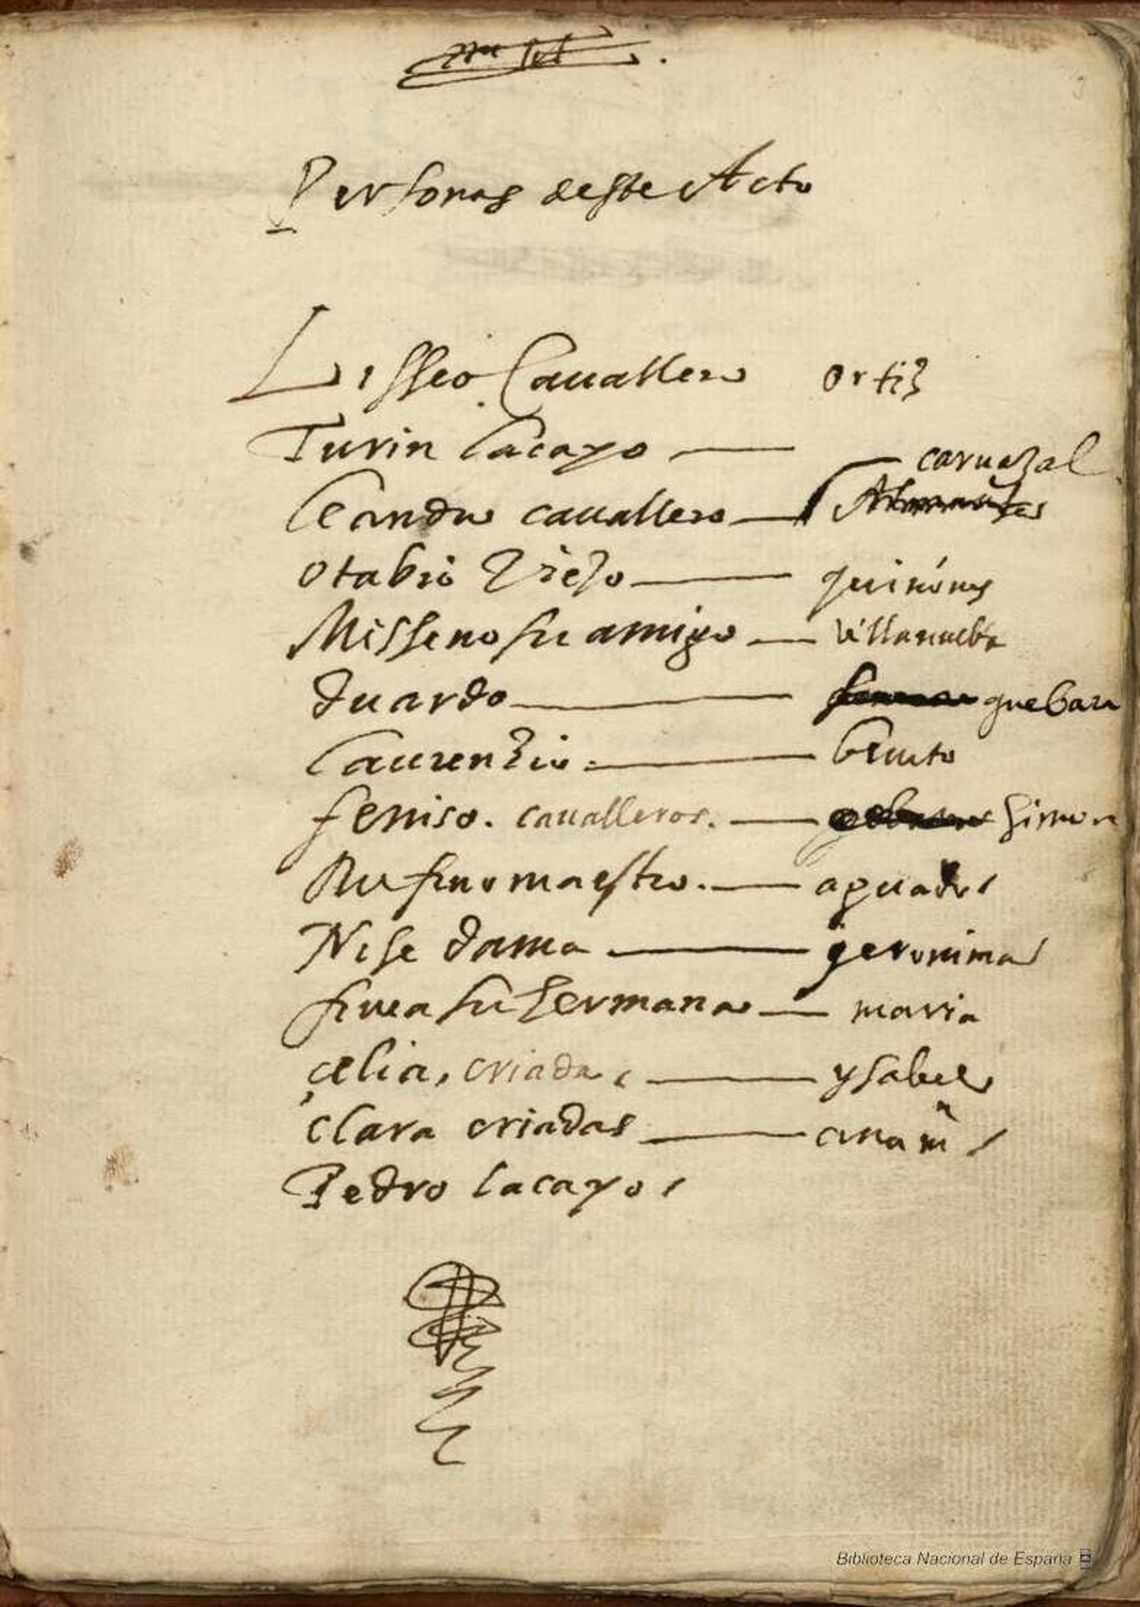 Personas deste Acto
Lisseo Cavallero ortiz
Turin lacayo
carvazal
Leandro cavallero
otabio Viejo quiñones
Misseno su amigo Villanueba
Duardo guebara
Laurenzio benito
feniso. cavalleros. Simon
Rufino maestro.
Nise dama geronima
finea su hermana maria
çelia, criada ysabel
clara criadas ana mª
Pedro lacayo
Biblioteca Nacional de España